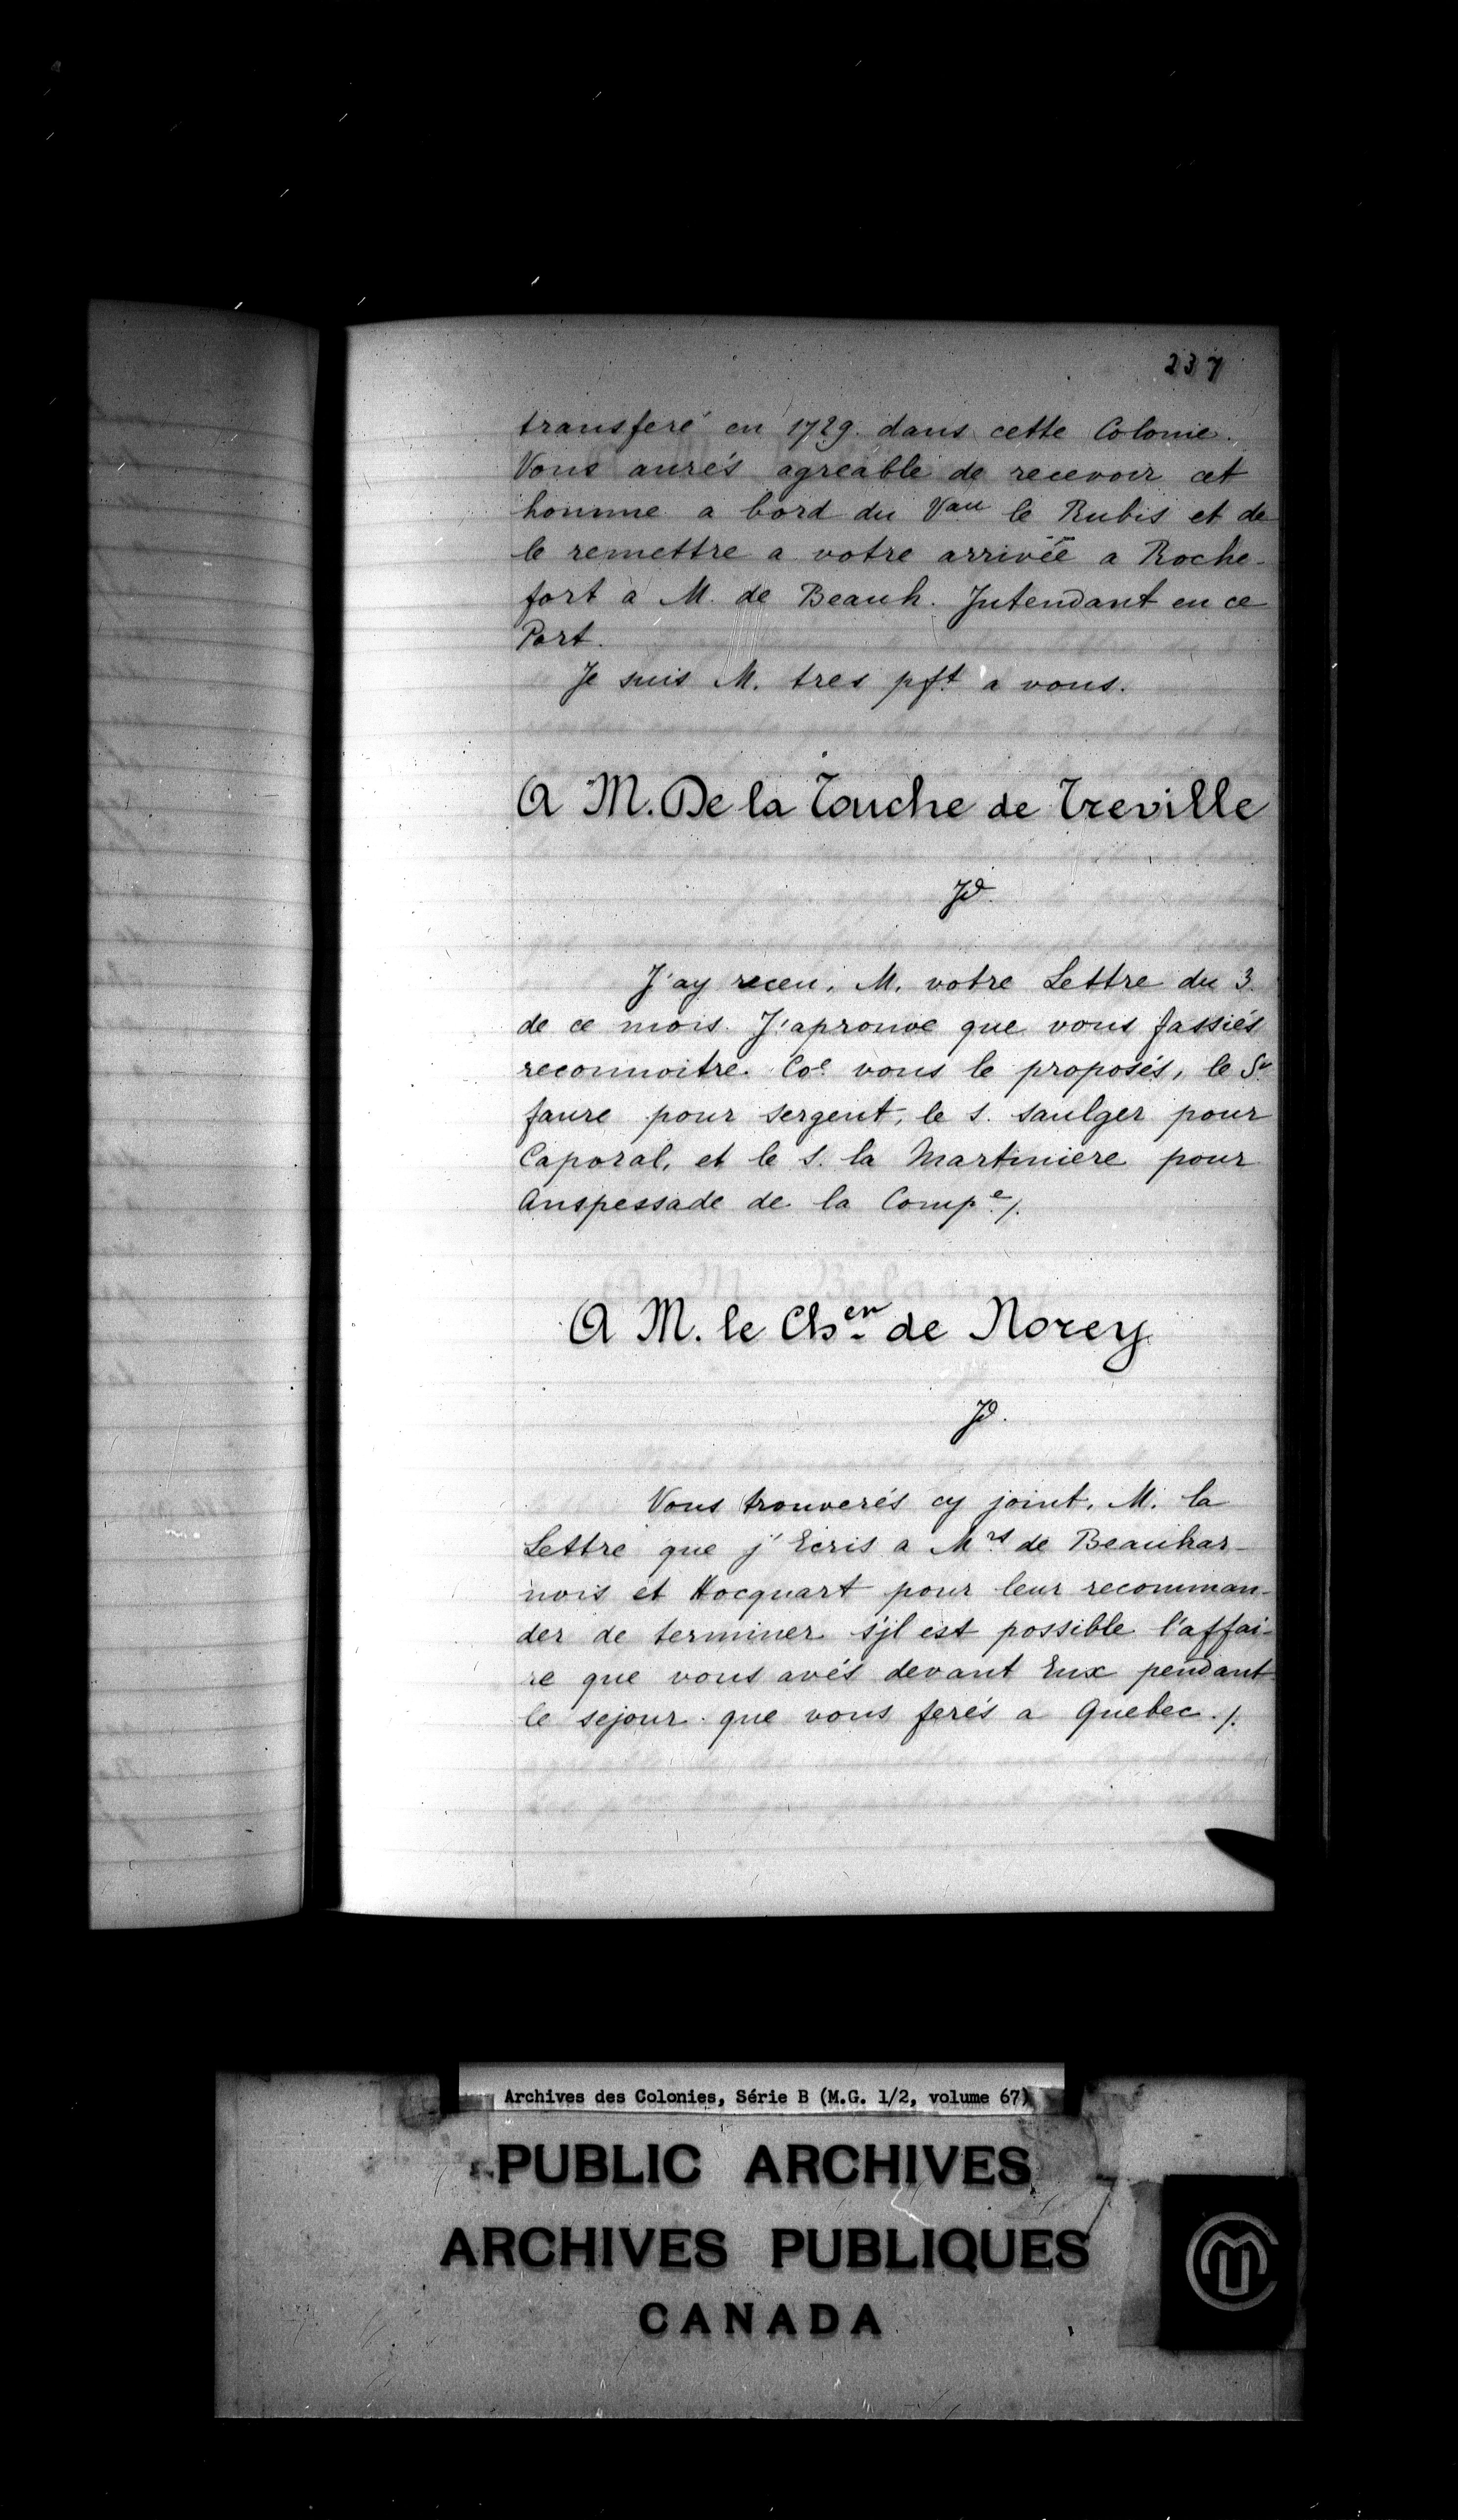 237
transferé en 1729. dans cette Colonie.
Vous aurés agreable de recevoir cet
homme a bord du Vau le Rubis et de
le remettre a votre arrivée a Roche-
fort a M. de Beauh. Jntendant en ce
Port.
Je suis M. tres pft a vous.
A M. De la Touche de Treville
Jd.
J'ay receu, M. votre Lettre du 3.
de ce mois. J'aprouve que vous fassiés
reconnoitre. Coe vous le proposés, le Sr
faure pour sergent, le s. saulger pour
Caporal, et le s. la Martiniere pour
Anspessade de la Compe/.
A M. le Cher de Norey
Jd.
Vous trouverés cy joint, M. la
Lettre que j'Ecris a Mrs de Beauhar-
nois et Hocquart pour leur recomman-
der de terminer s'jl est possible l'affai-
re que vous avés devant Eux pendant
le sejour que vous ferés a Quebec ./.
Archives des Colonies, Série B (M.G. 1/2, volume 67)
PUBLIC ARCHIVES
ARCHIVES PUBLIQUES
CANADA